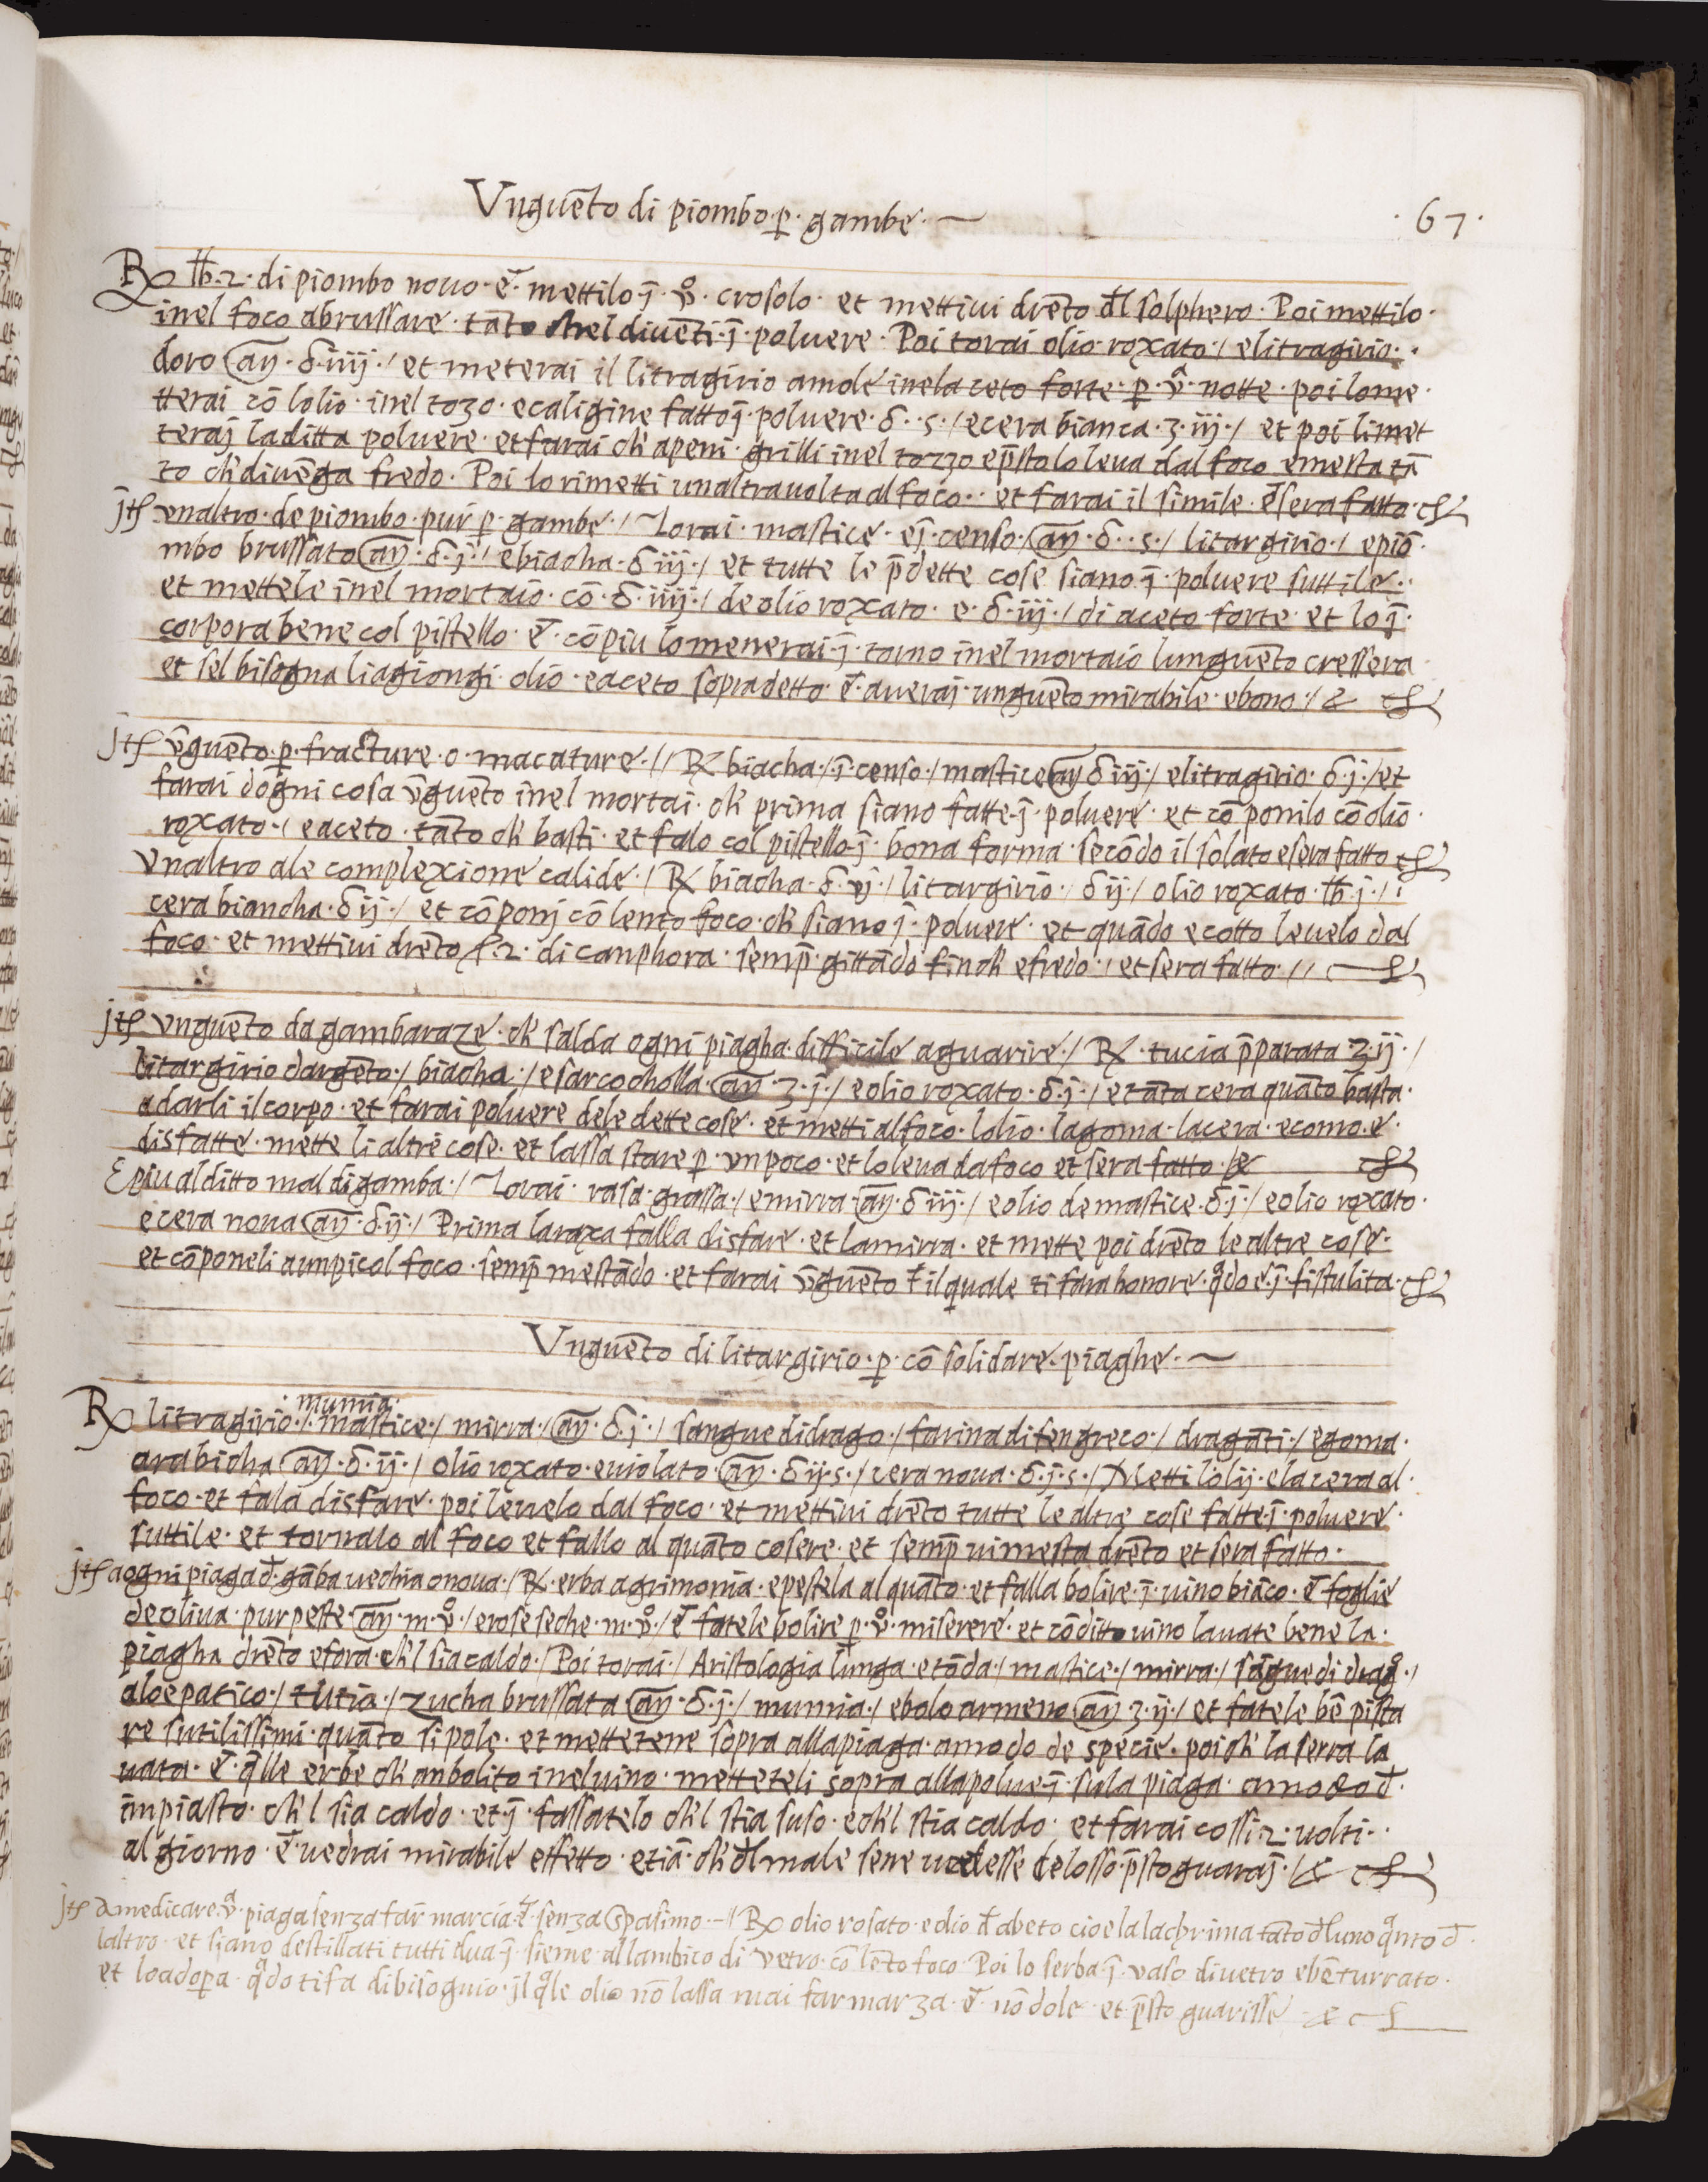 Vnguēto di piombo ꝑ gambe ·
· 67 ·
℞ ℔·2· di piombo nouo · et̄ · mettilo · ī · v̊ · crosolo · et mettiui drēto d̄l solphero · Poi mettilo ·
inel foco abrussare · tāto chel diuēti · ī · poluere · Poi torai olio roxato / elitragirio ·
doro añ · δ · iiij · / et meterai il litragirio amole inelaceto forte · ꝑ · vͣ · notte · poi lome
tterai cō lolio · inel · ecaligine fatto ī · poluere · δ · s · / ecera bianca · ʒ · iij · / et poi limet
teraj laditta poluere · et farai ch' apeni · grilli inel p̄sto lo leua dal foco emesta tā
to ch' diuēga fredo · Poi lo rimetti unaltra uolta al foco · · et farai il simile · et̄ sera fatto ·
jtẜ vnaltro · de piombo · pur ꝑ · gambe · / Torai · mastice · ej · censo · añ · δ · s · / litargirio · / epiō
mbo brussato añ · δ · j · / ebiacha · δ iij · / et tutte le p̄dette cose siano · ī · poluere suttile ·
et mettele inel mortaio · cō · δ · iiij · / de olio roxato · e · δ · iij · / di aceto forte · et lo ī ·
corpora bene col pistello · et̄ · cō piu lo menerai · ī · torno inel mortaio lunguēto cressera
et sel bisogna li agiongi · olio · eaceto sopradetto · et̄ · aueraj · unguēto mirabile · ebono · / &
jtẜ v̄guēto · ꝑ · fracture · o · macature · // ℞ biacha · / ī · censo · / mastice añ δ iij · / elitragirio · δ · j · / et
farai dogni cosa v̄guēto inel mortai · ch' prima siano fatte · ī · poluere · et cō ponilo cō olio ·
roxato · / eaceto · tāto ch' basti · et falo col pistello · ī · bona forma · secōdo il solato esera fatto
Vnaltro ale complexione calide · / ℞ biacha · δ · vj · / litargirio · / δ ij · / olio roxato · ℔ · j · / ·
cera biancha · δ ij · / et cō ponj cō lento foco · ch' siano ī · poluere · et quādo ecotto leuelo dal
foco · et mettiui drēto · 2 · di canphora · semp̄ · gittādo finch' efredo · / et sera fatto · //
jtẜ vnguēto da gambaraze · ch' salda ogni piagha difficile aguarire · / ℞ · tucia p̄parata ʒ · ij · /
litargirio dargēto · / biacha · / esarcocholla · añ · ʒ · j · / eolio roxato · δ · j · / etāta cera quāto basta ·
adarli il corpo · et farai poluere dele dette cose · et metti al foco · lolio · lagoma · lacera · ecomo · e ·
disfatte · mette li altre cose · et lassa stare ꝑ · vn poco · et lo leua da foco et sera fatto · &
Epiu al ditto mal di gamba · / Torai · rasa · grassa · / emirra · añ · δ iij · / eolio de mastice · δ · j · / eolio roxato ·
ecera noua añ · δ · ij · / Prima laraxa falla disfare · et lamirra · et mette poi drēto le altre cose ·
et cōponeli aunpicol foco · semp̄ mestādo · et farai v̄guēto · ilquale ti fara honore · qͣdo e · ī · fistulita ·
Vnguēto di litargirio · ꝑ · cō solidare · piaghe ·
· mumia ·
℞ litragirio · / mastice · / mirra · / añ · δ · j · / sangue didrago · / farina di fengreco · / dragāti · / egoma ·
arabicha añ · δ · ij · / olio roxato · euiolato · añ · δ ij · s · / cera noua · δ · j · s · / Metti lolij · elacera al ·
foco · et fala disfare · poi leuelo dal foco · et mettiui drēto tutte le altre cose fatte · ī · poluere ·
suttile · et tornalo al foco et fallo al quāto cosere · et semp̄ ui mesta drēto et sera fatto ·
jtẜ aogni piaga d̄ · gāba uechia onoua · / ℞ · erba agrimonia · epestela al quāto · et falla bolire · ī · uino biāco · et̄ foglie
de oliua · pur peste · añ · m · v̊ · / erose seche · m · v̊ · / et̄ fatele bolire ꝑ · v̊ · miserere · et cō ditto uino lauate bene la ·
piagha drēto efora · ch'l sia caldo · / Poi torai · / Aristologia lunga · etōda · / mastice · / mirra · / sāgue di drag̊ · /
aloe patico · / tutia · / zucha brussata añ · δ · j · / mumia · / ebolo armeno añ ʒ · ij · / et fatele bē pista
re sutilissimi · quāto si pole · et mettetene sopra allapiaga · amodo de specie · poi ch' la serra la
uata · et̄ · q̄lle erbe ch' anbolito inel uino · metteteli sopra alla poluere ī · sula piaga · amodo d̄ ·
impiasto · ch'l sia caldo · et · ī · fassatelo ch'l stia suso · ech'l stia caldo · et farai cossi · 2 · uolti ·
al giorno · et̄ uedrai mirabile effetto · etiā · ch' d̄l male sene uedesse delosso · p̄sto guaraj · / &
jtẜ amedicare · vͣ · piaga senza far marcia · et̄ · senza spasimo · // ℞ olio rosato · eolio d̄ abeto cioe la lachrima tāto d̄luno qͣnto d̄ ·
laltro · et siano destillati tutti dua · ī · sieme al lambico di vetro · cō lēto foco · Poi lo serba · ī · vaso diuetro ebē turrato ·
et loadoꝑa · qͣdo ti fa dibisognio · jl qͣle olio nō lassa mai far marza · et̄ · nō dole · et p̄sto guarisse · &